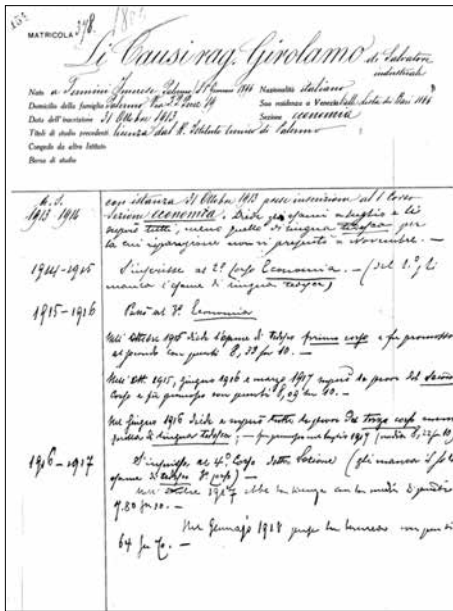 154
MATRICOLA 378.
Li Causi rag. Girolamo di Salvatore
industriale
Nato a Termini Imerese Palermo Gennaio 1896 Nazionalità italiano
Domicilio della famiglia Palermo Via Sua residenza a Venezia
Data dell'iscrizione 31 Ottobre 1913 Sezione economia
Titoli di studio precedenti licenza dal R. Istituto tecnico di Palermo
Congedo da altro Istituto
Borsa di studio
A. S.
1913 1914 con istanza 31 Ottobre 1913 prese inscrizione al 1 Corso
Sezione economica. Diede gli esami a luglio e li
superò tutti, meno quello di lingua tedesca per
la cui riparazione non si presentò a Novembre. —
1914-1915 S'inscrisse al 2° Corso Economia. — (del 1.° gli
manca l'esame di lingua tedesca)
1915-1916 Passò al 3° Economia
Nell'Ottobre 1915 diede l'esame di tedesco primo corso e fu promosso
al secondo con punti 8,33 su 10. —
Nell'Ott. 1915, Giugno 1916 e marzo 1917 superò le prove del secondo
Corso e fu promosso con punti 8,09 su 10. —
Nel Giugno 1916 diede e superò tutte le prove del terzo corso meno
quella di lingua tedesca. — fu promosso nel luglio 1917 (media 8,22 su 10)
1916-1917 S'inscrisse al 4° Corso detta Sezione (gli manca il solo
esame di tedesco 3° corso) —
Nell'Ottobre 1917 ebbe la licenza con la media di punti
7.80 su 10. —
Nel Gennajo 1918 prese la laurea con punti
64 su 70. —